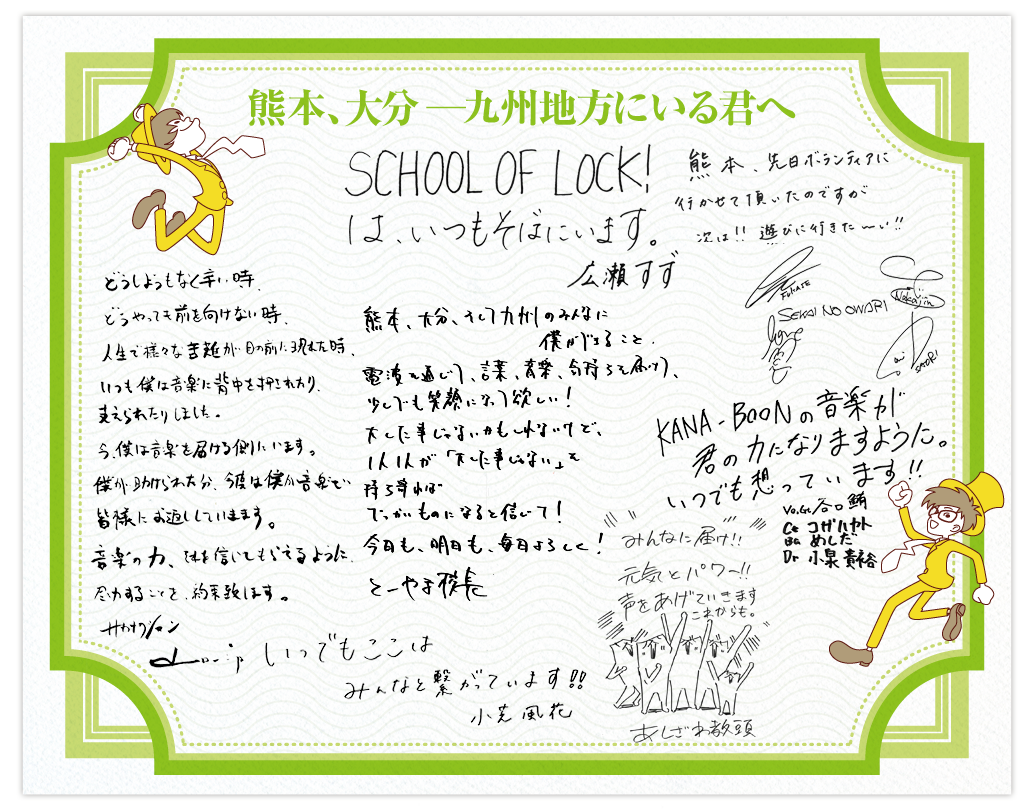 熊本、大分 ―九州地方にいる君へ
SCHOOL OF LOCK!
は、いつもそばにいます。
広瀬すず
熊本、先日ボランティアに
行かせて頂いたのですが
次は!! 遊びに行きた〜い!!
FUKASE
Nakajin
SEKAI NO OWARI
love
Saori
SAORI
どうしようもなく辛い時、
どうやっても前を向けない時、
人生で様々な苦難が目の前に現れた時、
いつも僕は音楽に背中を押されたり、
支えられたりしました。
今、僕は音楽を届ける側にいます。
僕が助けられた分、今度は僕が音楽で
皆様にお返ししていきます。
音楽の力、それを信じてもらえるように、
尽力することを、約束致します。
サカナクション
いつでもここは
みんなと繋がっています!!
小芝風花
熊本、大分、そして九州のみんなに
僕ができること。
電波を通じて、言葉、音楽、気持ちを届けて、
少しでも笑顔になって欲しい!
大した事じゃないかもしれないけど、
1人1人が「大した事じゃない」を
持ち寄れば
でっかいものになると信じて!
今日も、明日も、毎日よろしく!
とーやま校長
KANA-BOONの音楽が
君の力になりますように。
いつでも想っています!!
Vo.Gt. 谷口鮪
Gt コガハヤト
Ba めしだ
Dr 小泉貴裕
みんなに届け!!
元気とパワー!!
声をあげていきます
これからも。
あしざわ教頭